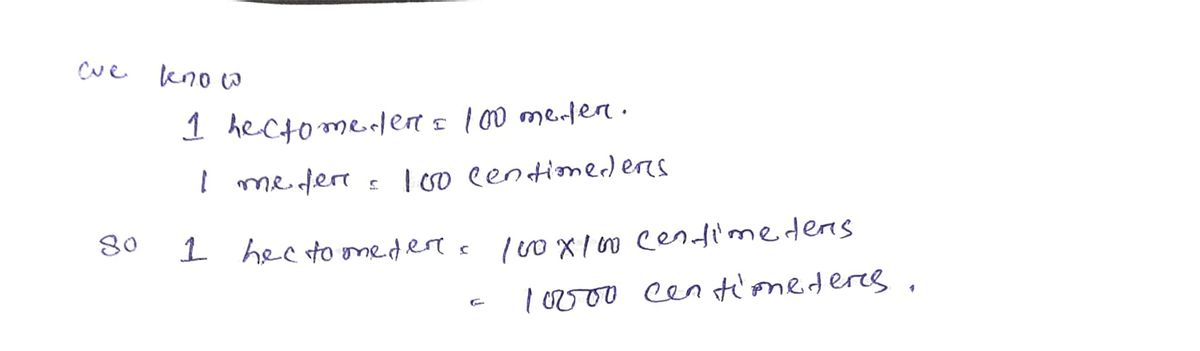 we know
1 hectometer = 100 meter.
1 meter = 100 centimeters
So 1 hectometer = 100 × 100 centimeters
= 10000 centimeters.